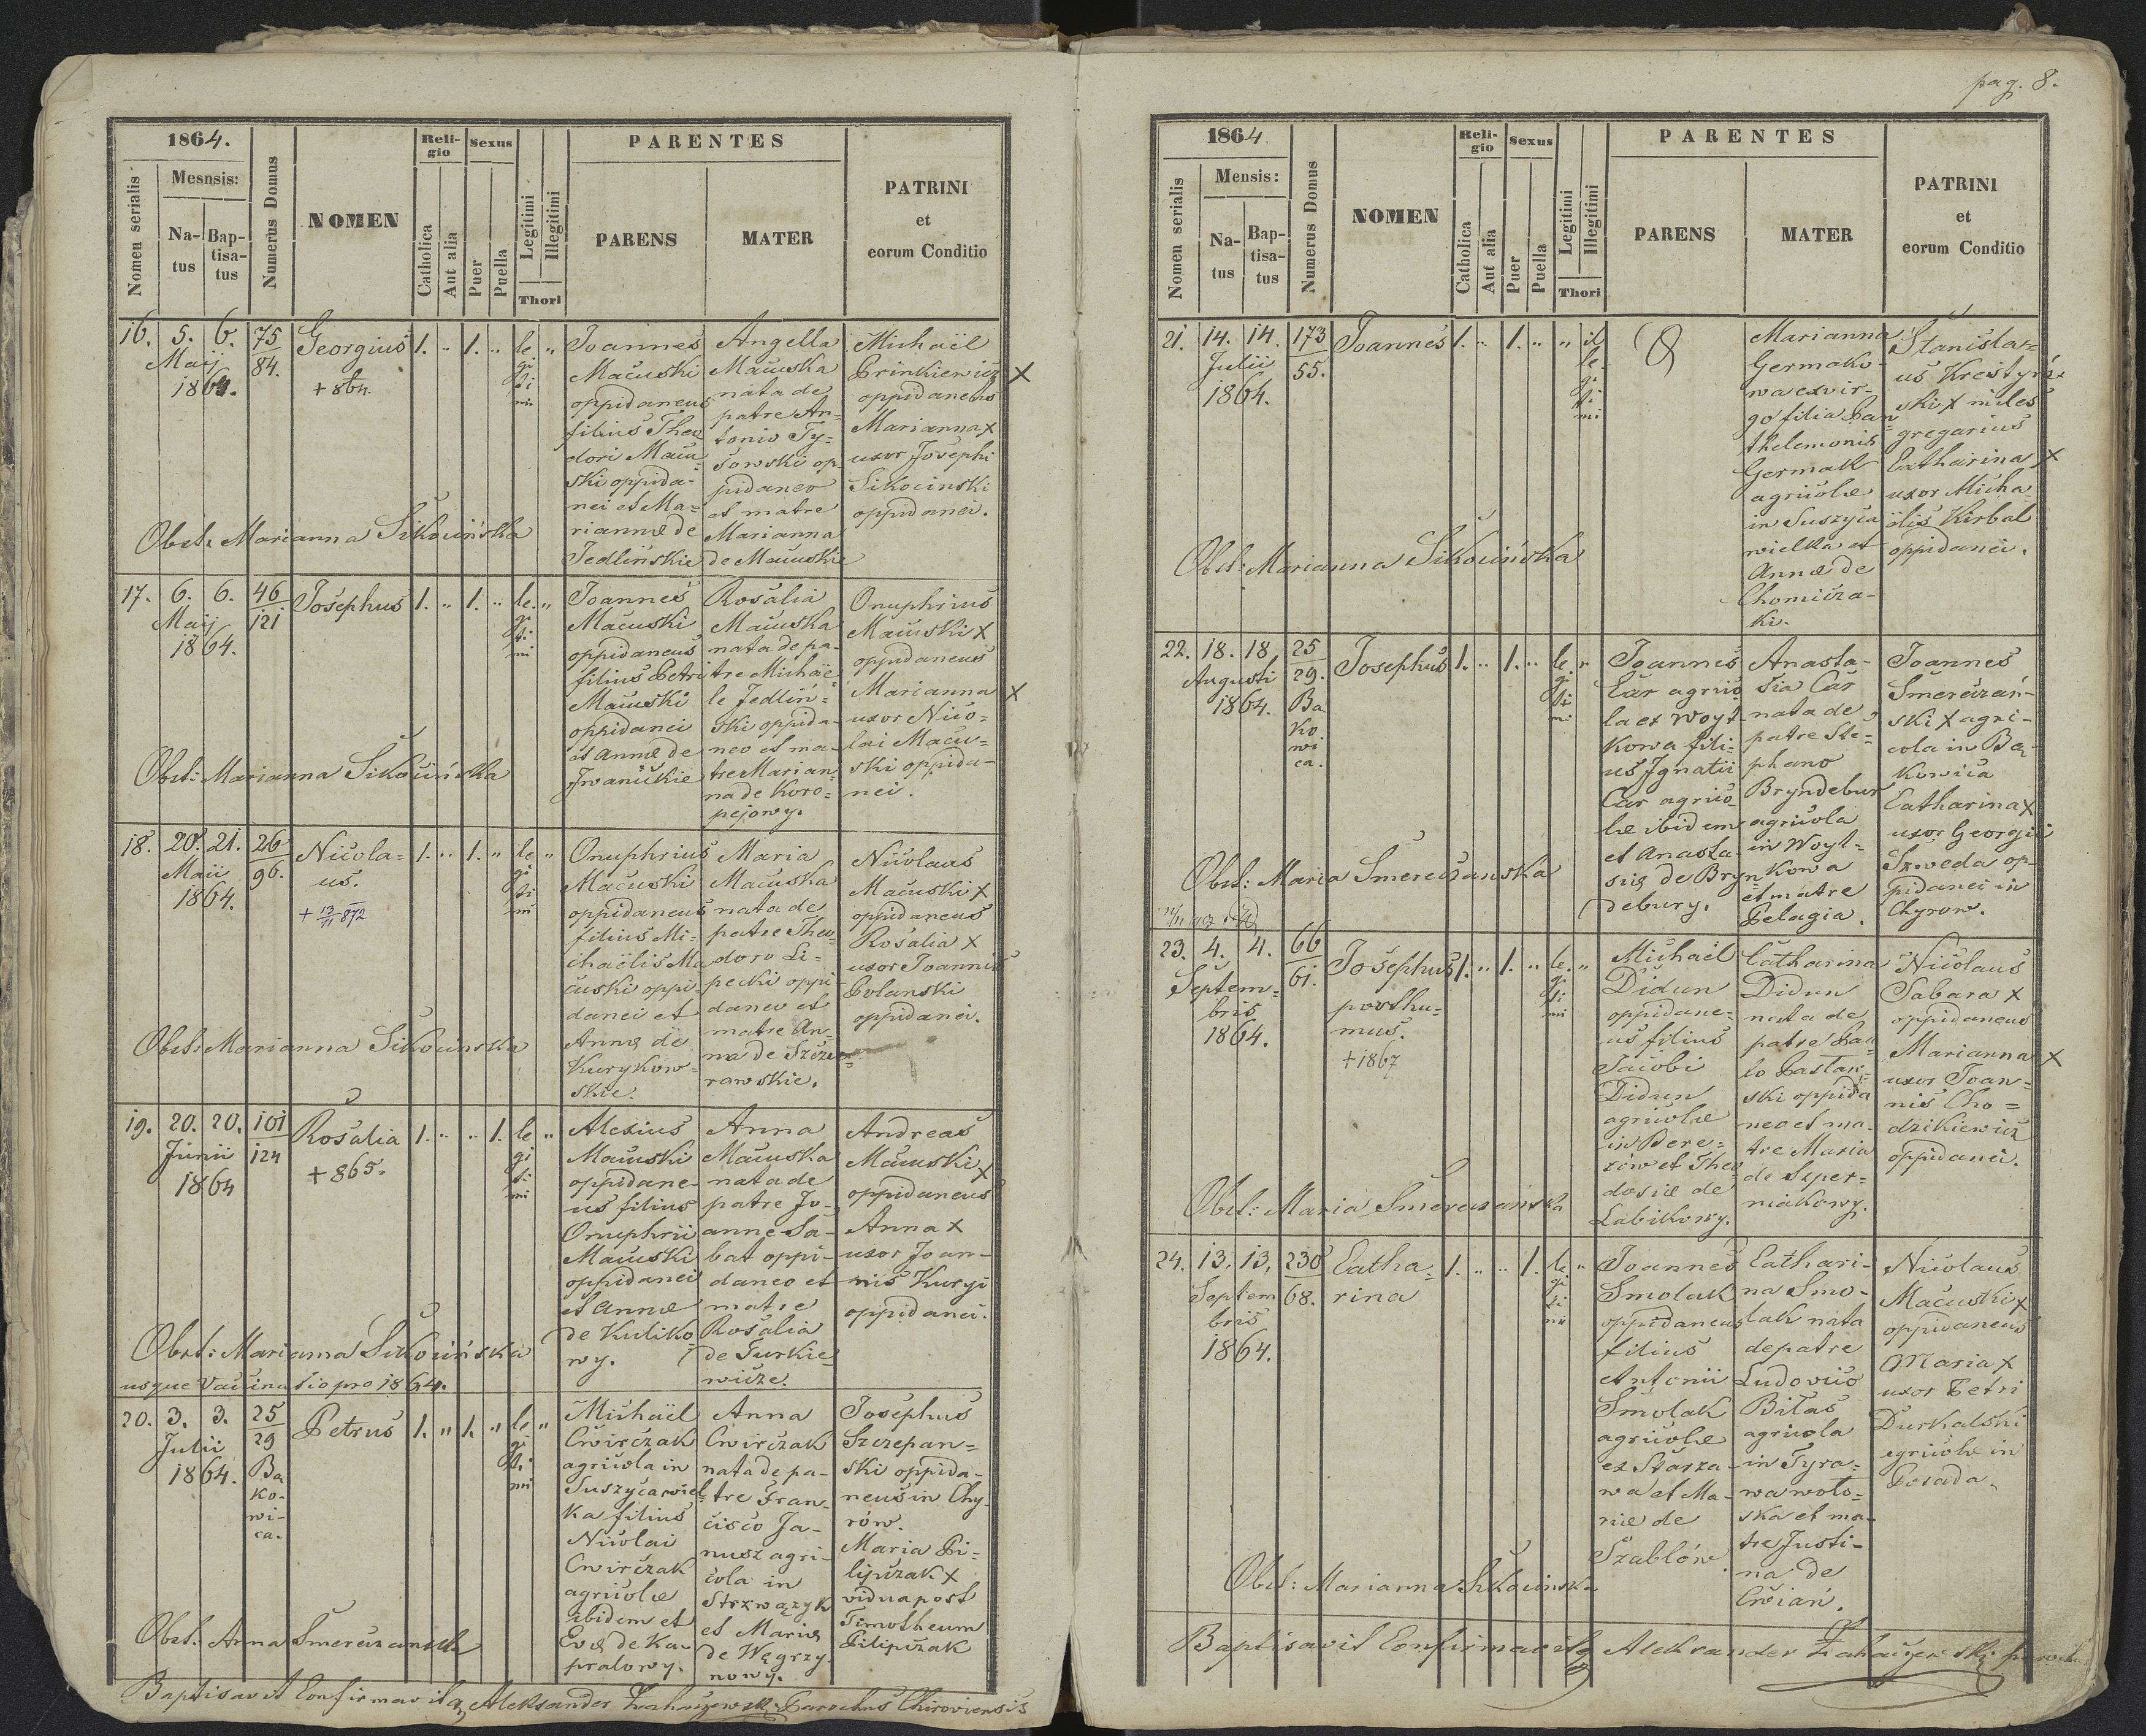 1864.
Mesnsis:
Nomen serialis
Na-
tus
Bap-
tisa-
tus
Numerus Domus
NOMEN
Reli-
gio
Catholica
Aut alia
Sexus
Puer
Puella
Legitimi
Illegitimi
Thori
PARENTES
PARENS
MATER
PATRINI
et
eorum Conditio
16. 5. 6. 75
Maij 84.
1864.
Georgius 1. " 1. " le "
gi
ti
mi
+864.
Joannes
Macuski
oppidaneus
filius Theo
dori Macu
ski oppida-
nei et Ma=
riannæ de
Jedlińskie
Angella
Macuska
nata de
patre An=
tonio Ty=
sowski op
pidaneo
et matre
Marianna
de Macuskie
Michaël
Prinkiewicz X
oppidaneus
Marianna X
uxor Josephi
Sikocinski
oppidanei.
Obst: Marianna Sikocińska
17. 6. 6. 46
Maij 121
1864.
Josephus 1. " 1. " le. "
gi
ti
mi
Joannes
Macuski
oppidaneus
filius Petri
Macuski
oppidanei
et Annæ de
Iwanickie
Rosalia
Macuska
nata de pa-
tre Michae=
le Jedlin=
ski oppida-
neo et ma-
tre Marian
na de Koro=
pejowy.
Onuphrius
Macuski X
oppidaneus
Marianna X
uxor Nico=
lai Macu=
ski oppida-
nei.
Obst: Marianna Sikocińska
18. 20. 21. 26
Maii 96.
1864.
Nicola=
us.
+ 13/11 872
1. " 1. " le "
gi
ti
mi
Onuphrius
Macuski
oppidaneus
filius Mi=
chaëlis Ma
cuski oppi-
danei et
Annæ de
Kurykow-
skie.
Maria
Macuska
nata de
patre Theo=
doro Li=
pecki oppi-
daneo et
matre An-
na de Szcze=
rowskie.
Nicolaus
Macuski X
oppidaneus
Rosalia X
uxor Joannis
Polanski
oppidanei.
Obst: Marianna Sikocinska
19. 20. 20. 101
Junii 124
1864
Rosalia 1. " " 1. le "
gi
ti
mi
+865.
Alexius
Macuski
oppidane-
us filius
Onuphrii
Macuski
oppidanei
et Annæ
de Kuliko
wy.
Anna
Macuska
nata de
patre Jo-
anne Sa-
bat oppi-
daneo et
matre
Rosalia
de Turkie=
wicze.
Andreas
Macuski X
oppidaneus
Anna X
uxor Joan-
nis Kuryj
oppidanei.
Obst: Marianna Sikocińska
usque Vaccinatio pro 1864.
20. 3. 3. 25
Julii 29
1864. Ba
ko-
wi-
ca.
Petrus 1. " 1. " le "
gi
ti
mi
Michaël
Cwirczak
agricola in
Suszyca wiel
ka filius
Nicolai
Cwirczak
agricolæ
ibidem et
Evæ de Ka-
pralowy.
Anna
Cwirczak
nata de pa-
tre Fran-
cisco Ja-
nusz agri-
cola in
Strzwązyk
et Maria
de Węgrzy-
nowy.
Josephus
Szczepan=
ski oppida-
neus in Chy-
rów.
Maria Pi=
lipczak X
vidua post
Timotheum
Pilipczak
Obst: Anna Smereczanska
Baptisavit Confirmavitq Aleksander Parochus Chiroviensis
pag. 8.
1864.
Mensis:
Nomen serialis
Na-
tus
Bap-
tisa-
tus
Numerus Domus
NOMEN
Reli-
gio
Catholica
Aut alia
Sexus
Puer
Puella
Legitimi
Illegitimi
Thori
PARENTES
PARENS
MATER
PATRINI
et
eorum Conditio
21. 14. 14. 173
Julii 55.
1864.
Joannes 1. " 1. " " il
le.
gi
ti
mi
Marianna
Germako-
wa exvir-
go filia Pan
thelemonis
Germak
agricolæ
in Suszyca
wielka et
Annæ de
Chomicza-
ki.
Stanisla=
us Krestyń
ski X miles
gregarius
Catharina X
uxor Micha
ëlis Kirbal
oppidanei.
Obst: Marianna Sikocińska
22. 18. 18 25
Augusti 29.
1864. Ba
ko
wi
ca.
Josephus 1. " 1. " le "
gi
ti
mi
Joannes
Car agrico
la ex Woyt
kowa fili-
us Ignatii
Car agrico-
læ ibidem
et Anasta-
siæ de Bryn
debury.
Anasta-
sia Car
nata de
patre Ste=
phano
Bryndebur
agricola
in Woyt-
kowa
et matre
Pelagia.
Joannes
Smereczań-
ski X agri-
cola in Ba-
kowica
Catharina X
uxor Georgii
Szweda op-
pidanei in
Chyrow.
Obst: Maria Smereczanska
23. 4. 4. 66
Septem= 61.
bris
1864.
Josephus 1. " 1. " le. "
gi
ti
mi
posthu=
mus.
+1867
Michaël
Didun
oppidane=
us filius
Jacobi
Didun
agricolæ
in Bere=
zów et Theo
dosiæ de
Labikowy.
Catharina
Didun
nata de
patre Pau
lo Pastań
ski oppida
neo et ma-
tre Maria
de Szper=
niakowy.
Nicolaus
Sabara X
oppidaneus
Marianna X
uxor Joan=
nis Cho=
dzikiewicz
oppidanei.
Obst: Maria Smereczańska
24. 13. 13. 230
Septem 68.
bris
1864.
Catha=
rina
1. " " 1. le "
gi
ti
mi
Joannes
Smolak
oppidaneus
filius
Antonii
Smolak
agricolæ
ex Starza-
wa et Ma-
riæ de
Szablów
Cathari-
na Smo-
lak nata
de patre
Ludovico
Bitas
agricola
in Tyra=
wa woło=
ska et ma-
tre Justi-
na de
Cwian.
Nicolaus
Macuski X
oppidaneus
Maria X
uxor Petri
Durkalski
agricolæ in
Posada.
Obst: Marianna Sikocinska
Baptisavit Confirmavitq Aleksander parochus